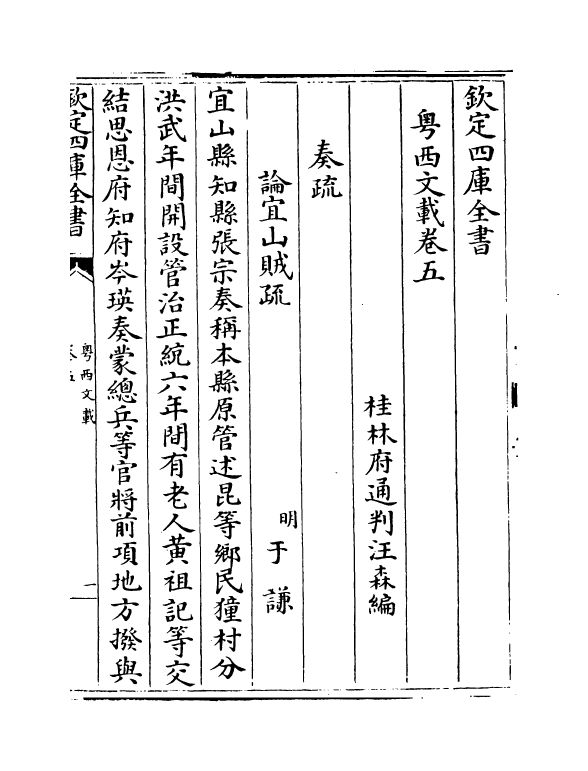 欽定四庫全書
粤西文載卷五
桂林府通判汪森編
奏疏
論宜山賊疏
明于謙
宜山縣知縣張宗奏稱本縣原管述昆等鄉民獞村分
洪武年間開設管治正統六年間有老人黃祖記等交
結思恩府知府岑瑛奏蒙總兵等官將前項地方撥與
欽定四庫全書
粤西文載
卷五
一